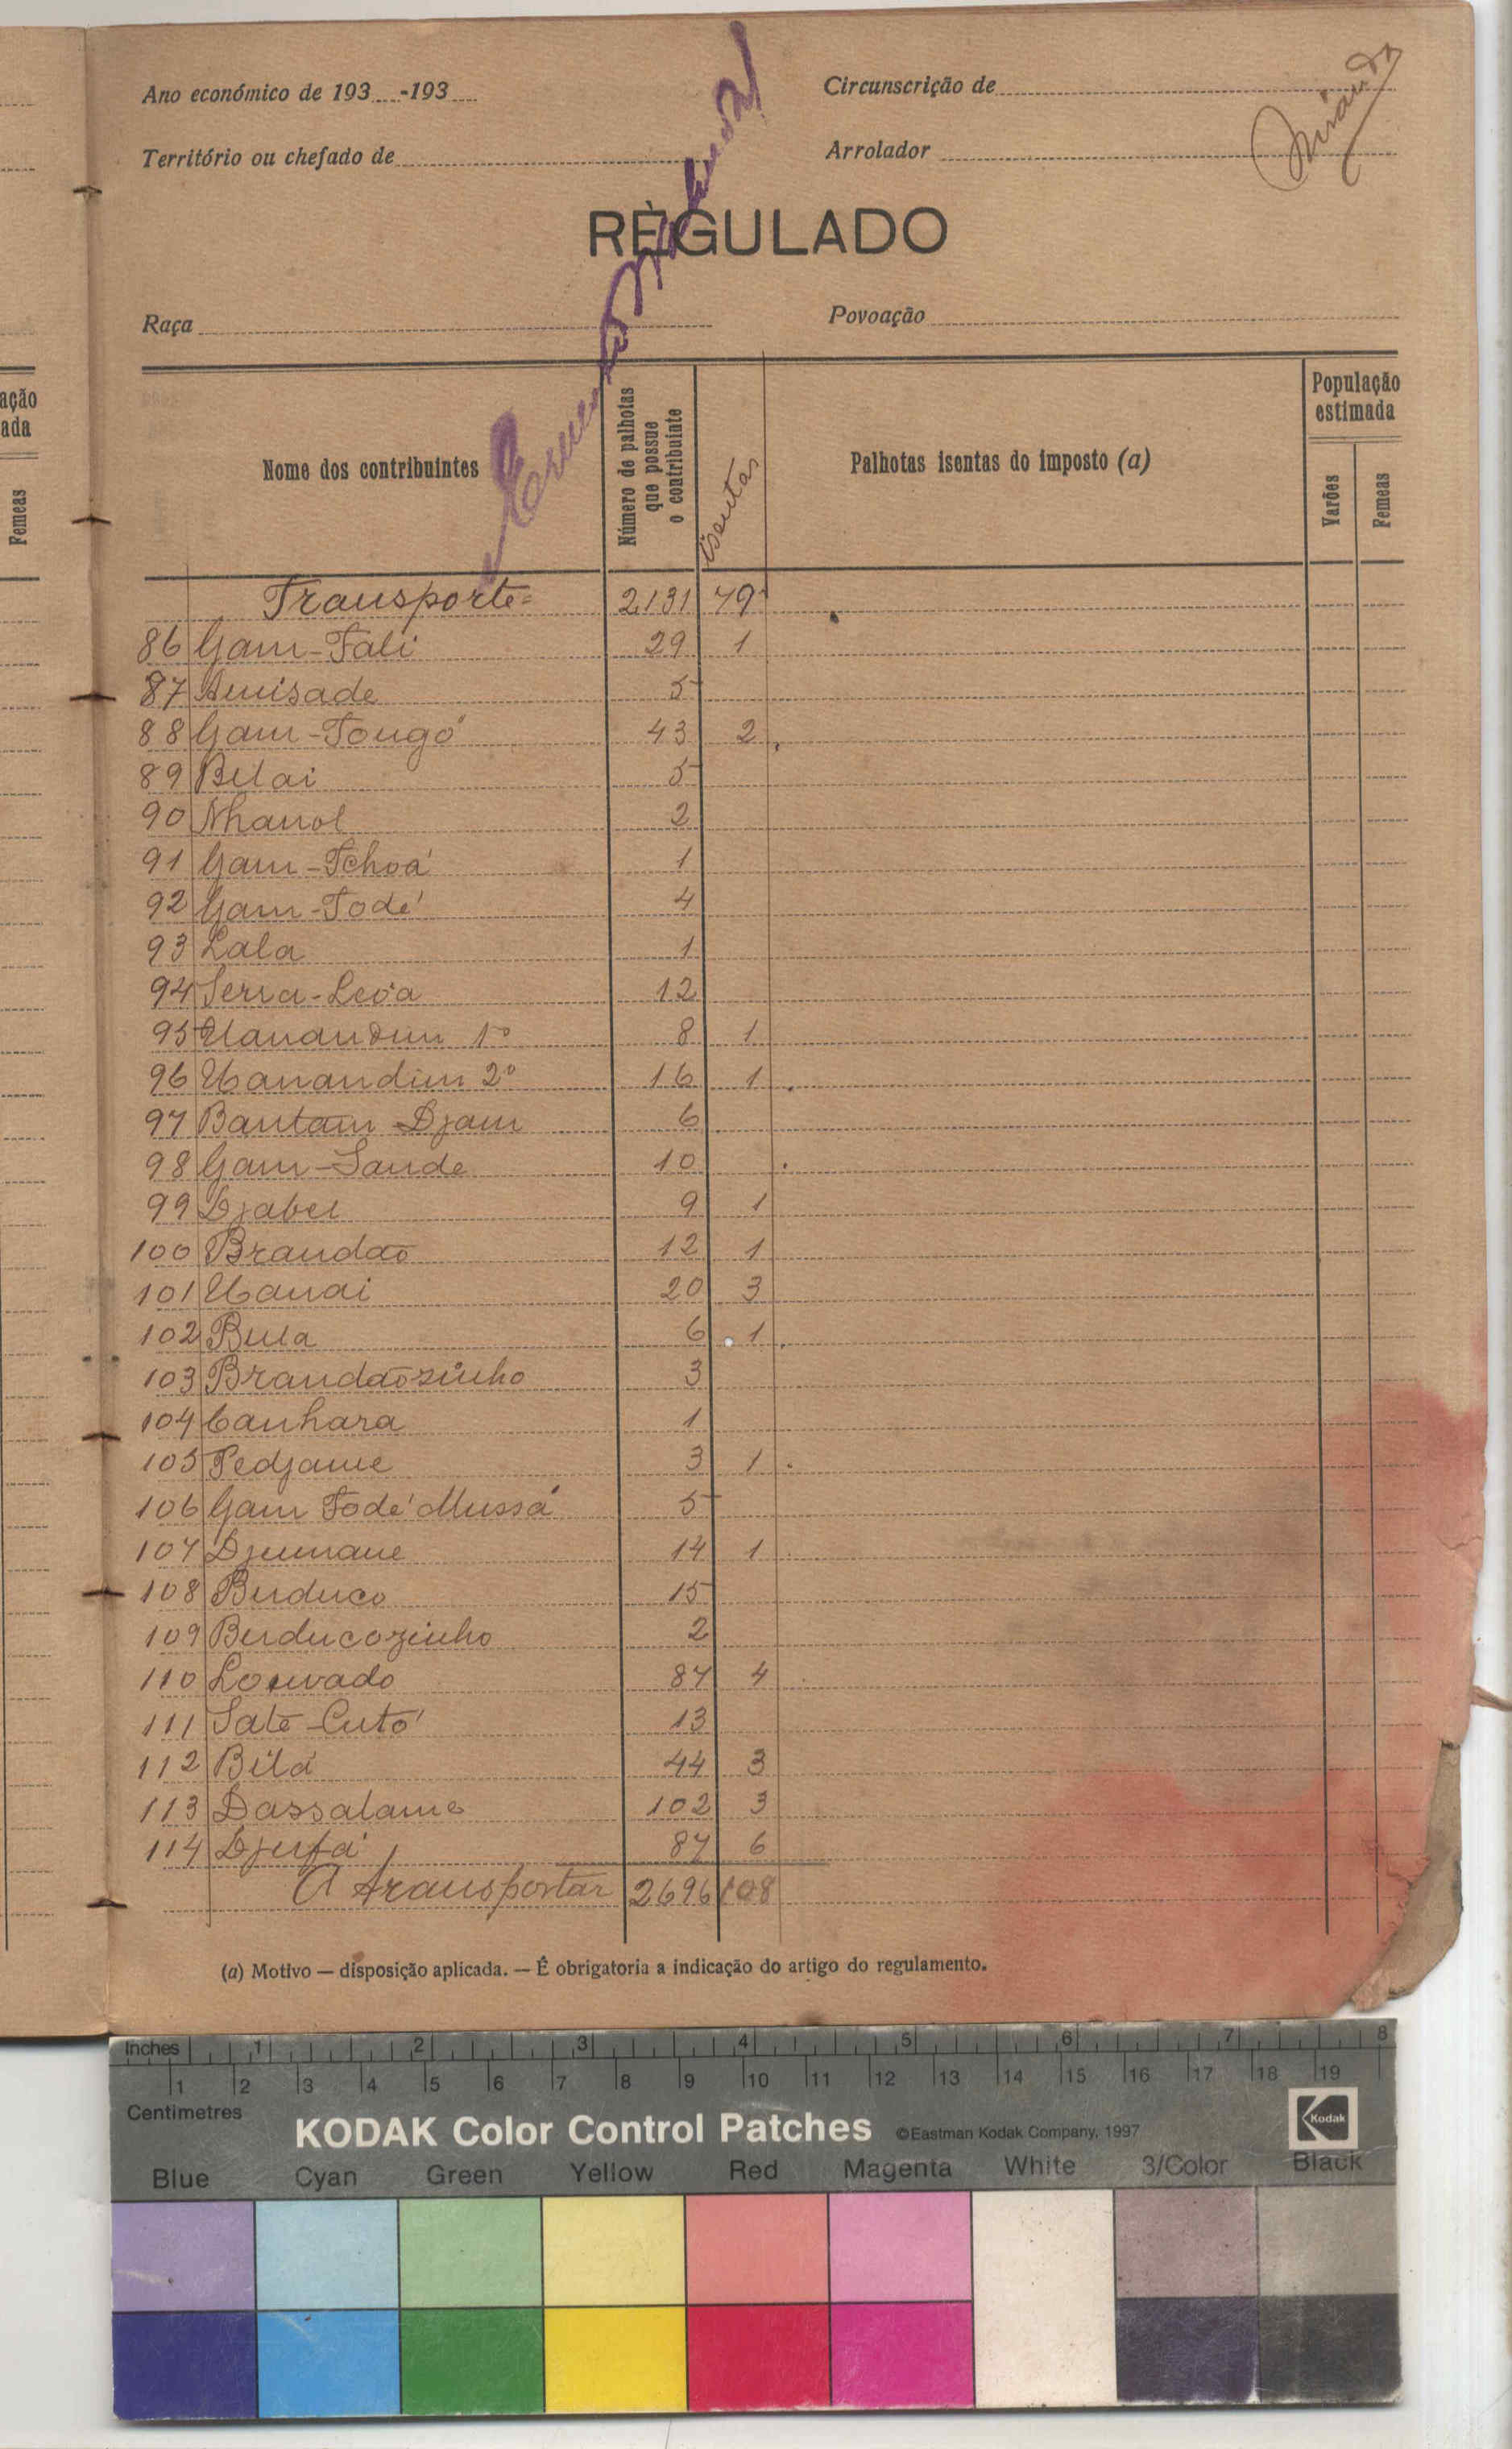 Ano económico de 193....-193....
Circunscrição de
Território ou chefado de
Arrolador
RÈGULADO
Raça
Povoação
Nome dos contribuintes
Número de palhotas que possue o contribuiate
isentas
Palhotas isentas do imposto (a)
População estimada
Varões
Femeas
ação
ada
Femeas
Transporte= 2131 79
86 Gam-Fali 29 1
87 Amisade 5
88 Gam-Tongó 43 2
89 Bilai 5
90 Nhanol 2
91 Gam-Tchoá 1
92 Gam-Fodé 4
93 Lala 1
94 Serra-Leôa 12
95 Uanandim 1º 8 1
96 Uanandim 2º 16 1
97 Bantam Djam 6
98 Gam-Sande 10
99 Djabel 9 1
100 Brandão 12 1
101 Uanai 20 3
102 Bula 6 1
103 Brandãozinho 3
104 Canhara 1
105 Pedjame 3 1
106 Gam Fodé Mussá 5
107 Djumane 14 1
108 Buduco 15
109 Buducozinho 2
110 Louvado 87 4
111 Saté-Cutó 13
112 Bilá 44 3
113 Dassalame 102 3
114 Djufá 87 6
A transportar 2696 108
(a) Motivo — disposição aplicada. — É obrigatoria a indicação do artigo do regulamento.
Inches 1 2 3 4 5 6 7 8
1 2 3 4 5 6 7 8 9 10 11 12 13 14 15 16 17 18 19
Centimetres
KODAK Color Control Patches ©Eastman Kodak Company, 1997 Kodak
Blue Cyan Green Yellow Red Magenta White 3/Color Black